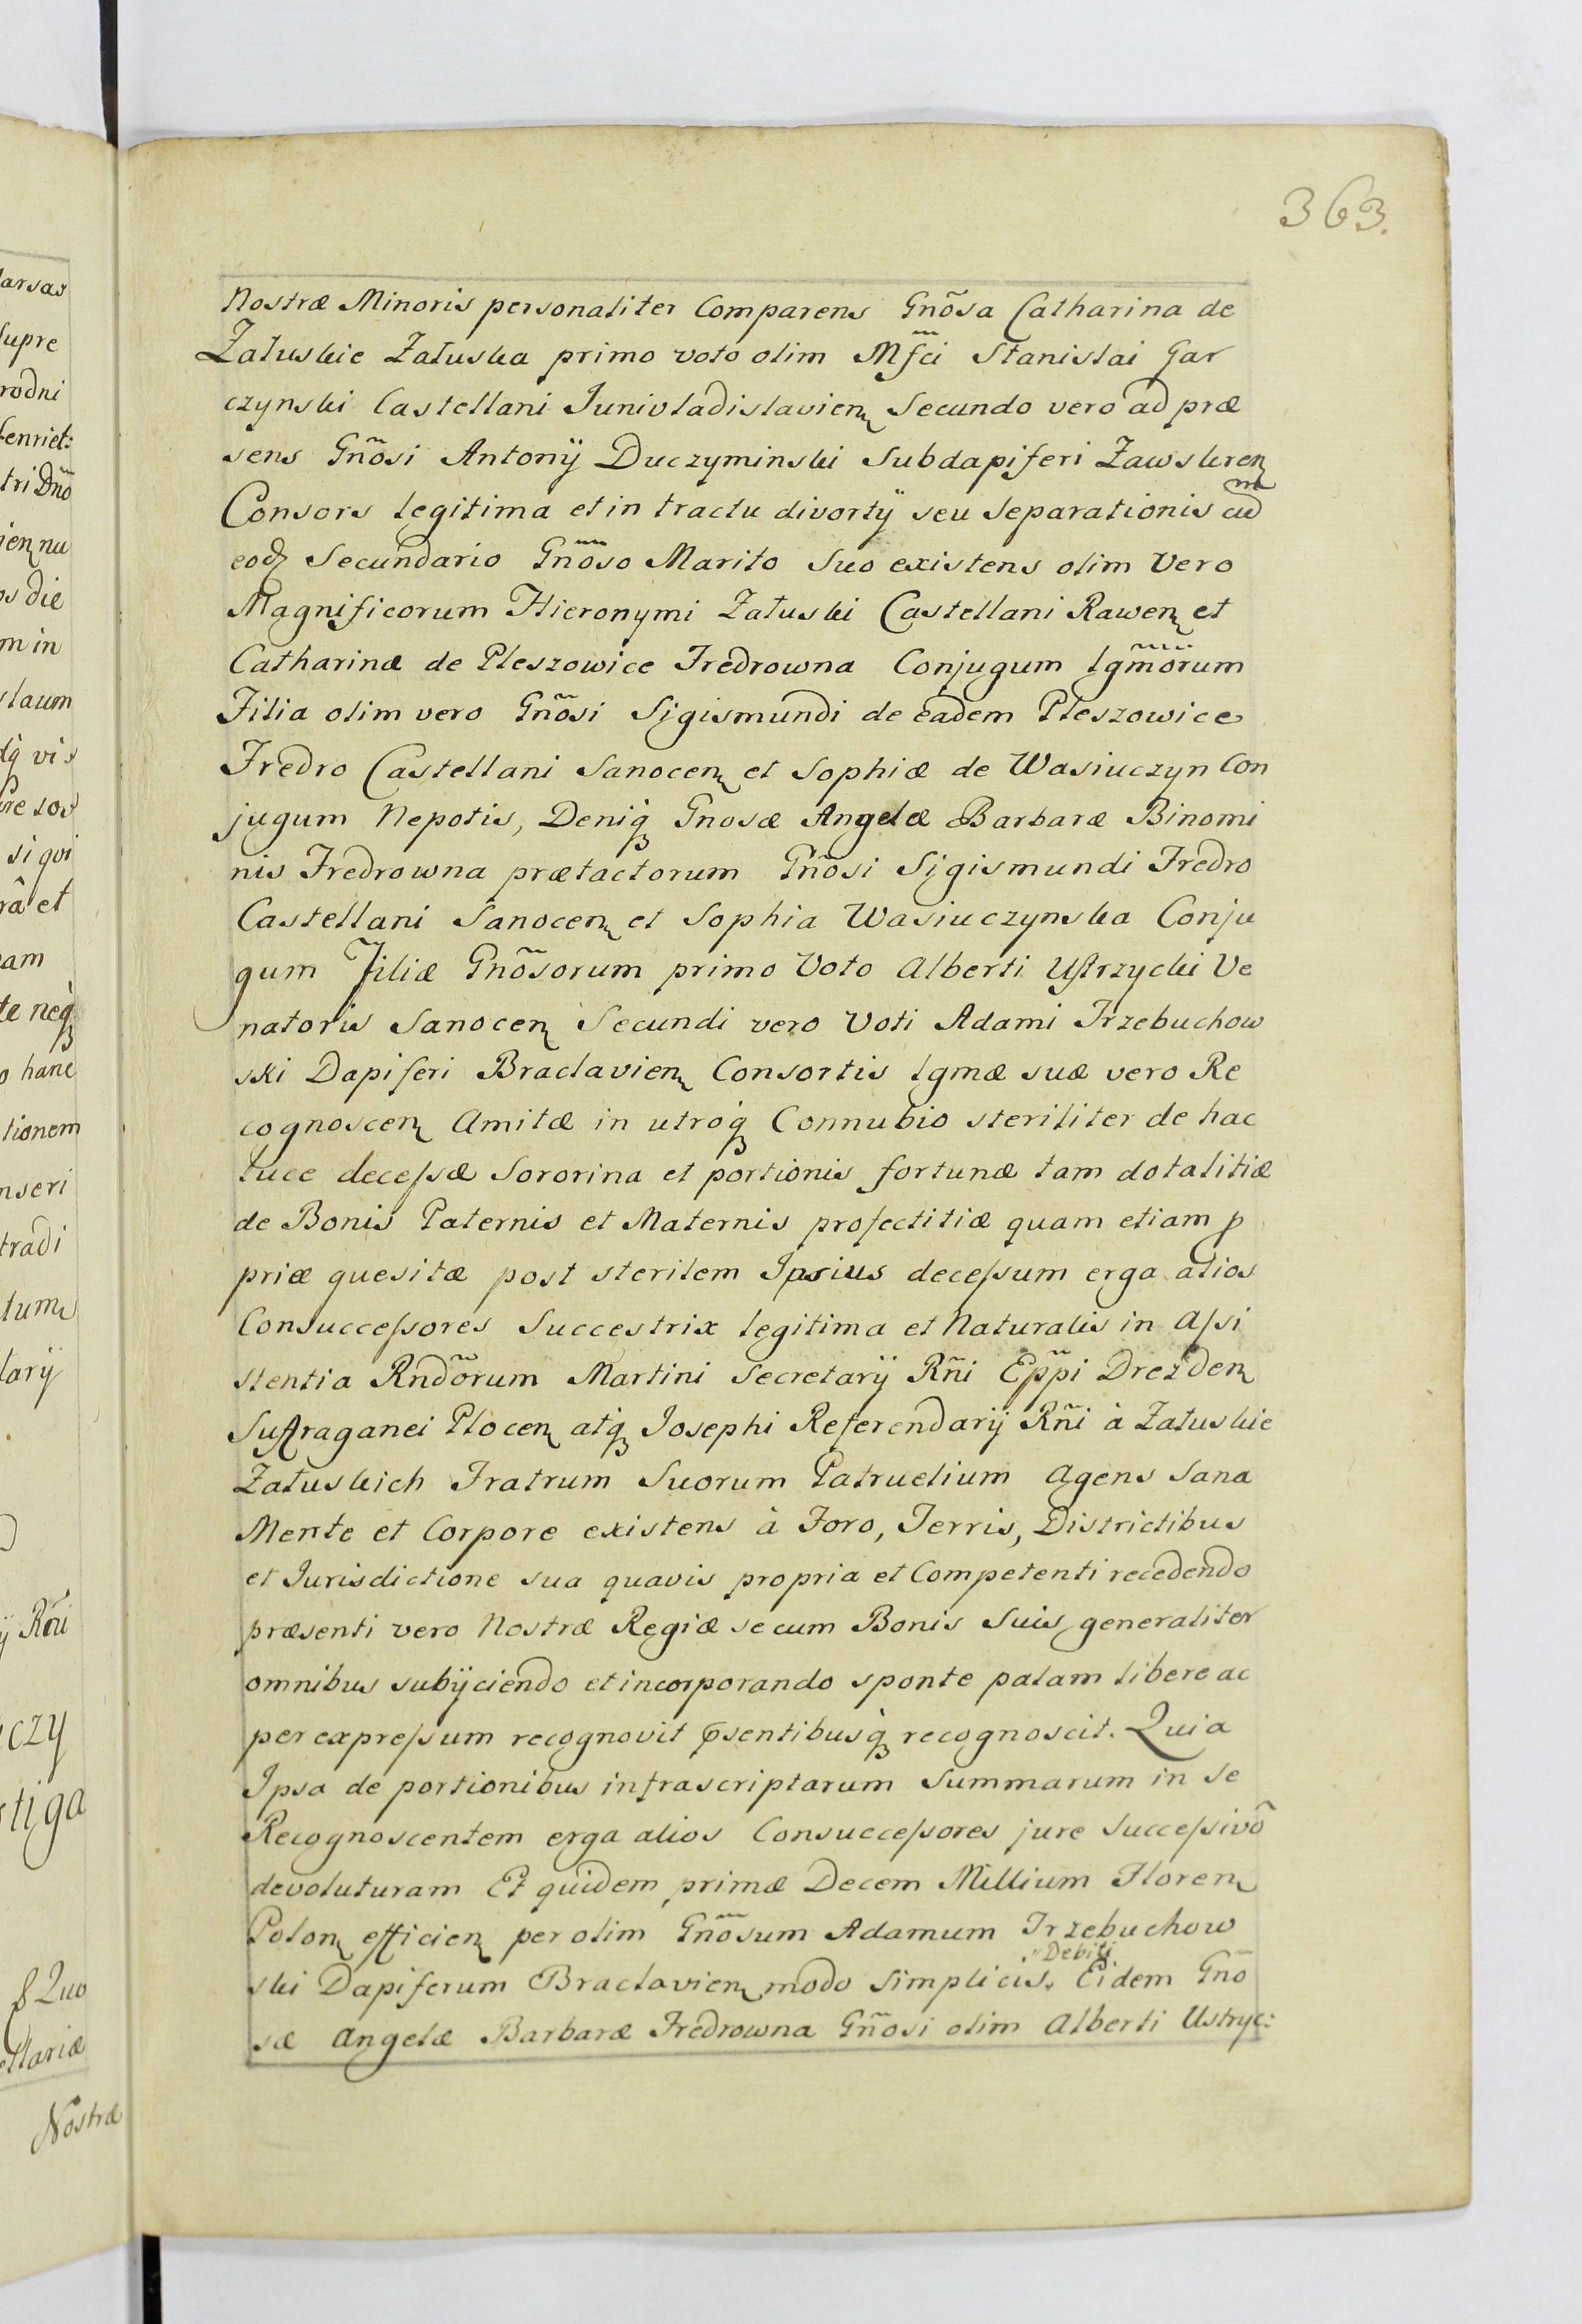 363.
Nostræ Minoris personaliter Comparens Gnõsa Catharina de
Załuskie Załuska primo voto olim Mfci Stanislai Gar
czynski Castellani Junivladislavien Secundo vero ad præ
sens Gnõsi Antonij Duczyminski Subdapiferi Zawskren
Consors legitima et in tractu divortij seu Separationis cũ
eod Secundario Gnõso Marito Suo existens olim Vero
Magnificorum Hieronymi Załuski Castellani Rawen et
Catharinæ de Pleszowice Fredrowna Conjugum lgmõrum
Filia olim vero Gnõsi Sigismundi de eadem Pleszowice
Fredro Castellani Sanocen et Sophiæ de Wasiuczyn Con
jugum Nepotis, Deniq Gnosæ Angelæ Barbaræ Binomi
nis Fredrowna prætactorum Gnõsi Sigismundi Fredro
Castellani Sanocen et Sophia Wasiuczynska Conju
gum Filiæ Gnõsorum primo Voto Alberti Ustrzycki Ve
natoris Sanocen Secundi vero Voti Adami Trzebuchow
ski Dapiferi Braclavien Consortis lgmæ suæ vero Re
cognoscen Amitæ in utroq Connubio steriliter de hac
luce decessæ Sororina et portionis fortunæ tam dotalitiæ
de Bonis Paternis et Maternis profectitiæ quam etiam p
priæ quesitæ post sterilem Ipsius decessum erga alios
Consuccessores Successtrix legitima et Naturalis in Assi
stentia Rndõrum Martini Secretarij Rñi Eppi Drezden
Suffraganei Plocen atq Josephi Referendarij Rñi à Załuskie
Załuskich Fratrum Suorum Patruelium Agens Sana
Mente et Corpore existens à Foro, Terris, Districtibus
et Jurisdictione sua quavis propria et Competenti recedendo
præsenti vero Nostræ Regiæ se cum Bonis Suis generaliter
omnibus subijciendo et incorporando sponte palam libere ac
per expressum recognovit psentibusq recognoscit. Quia
Ipsa de portionibus infrascriptarum Summarum in se
Recognoscentem erga alios Consuccessores jure Successivô
devoluturam Et quidem primæ Decem Millium Floren
Polon efficien per olim Gnõsum Adamum Trzebuchow
ski Dapiferum Braclavien modo Simplicis Debiti Eidem Gnõ
sæ Angelæ Barbaræ Fredrowna Gnõsi olim Alberti Ustryc: